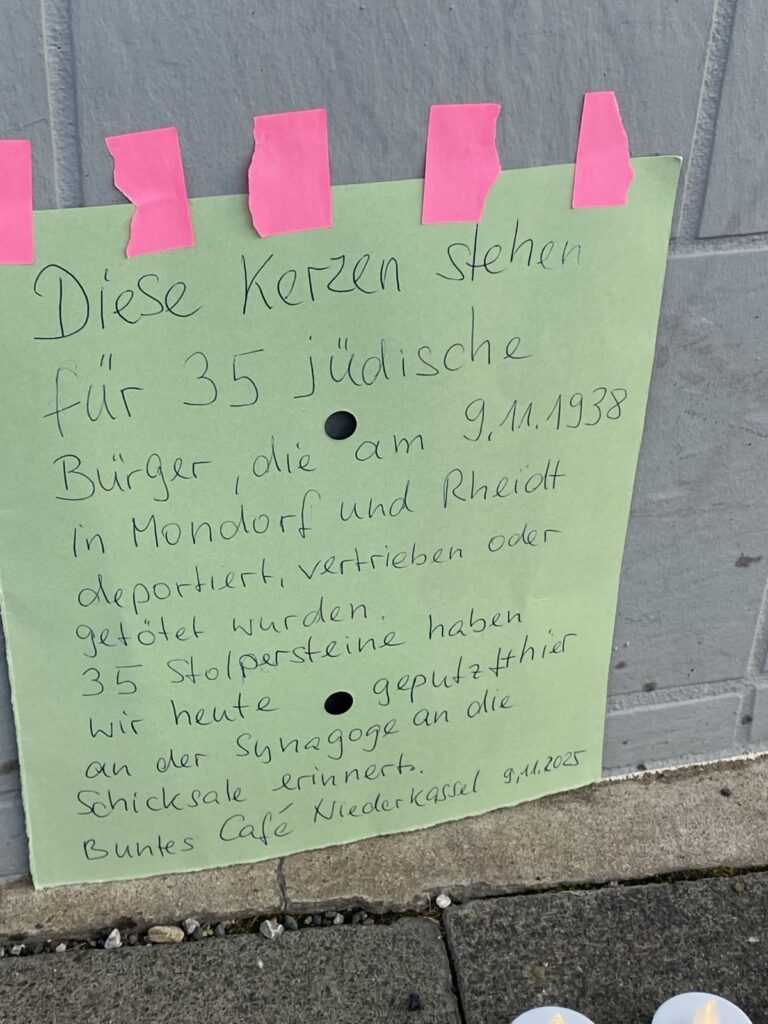 Diese Kerzen stehen
für 35 jüdische
Bürger, die am 9.11.1938
in Mondorf und Rheidt
deportiert, vertrieben oder
getötet wurden.
35 Stolpersteine haben
wir heute geputzt + hier
an der Synagoge an die
Schicksale erinnert.
Buntes Café Niederkassel 9.11.2025